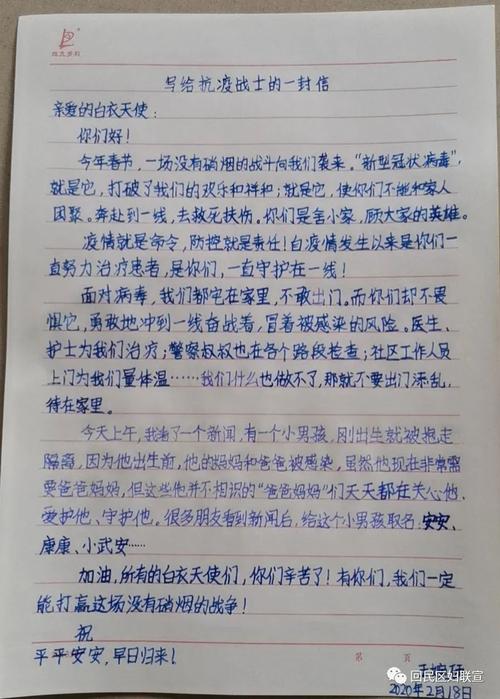 写给抗疫战士的一封信
亲爱的白衣天使：
你们好！
今年春节，一场没有硝烟的战斗向我们袭来。“新型冠状病毒”，
就是它，打破了我们的欢乐和祥和；就是它，使你们不能和家人
团聚。奔赴到一线，去救死扶伤。你们是舍小家，顾大家的英雄。
疫情就是命令，防控就是责任！自疫情发生以来是你们一
直努力治疗患者，是你们，一直守护在一线！
面对病毒，我们都宅在家里，不敢出门。而你们却不畏
惧它，勇敢地冲到一线奋战着，冒着被感染的风险。医生、
护士为我们治疗；警察叔叔也在各个路段检查；社区工作人员
上门为我们量体温……我们什么也做不了，那就不要出门添乱，
待在家里。
今天上午，我看了一个新闻，有一个小男孩，刚出生就被抱走
隔离，因为他出生前，他的妈妈和爸爸被感染，虽然他现在非常需
要爸爸妈妈，但这些他并不相识的“爸爸妈妈”们天天都在关心他、
爱护他、守护他。很多朋友看到新闻后，给这个小男孩取名：安安、
康康、小武安……
加油，所有的白衣天使们，你们辛苦了！有你们，我们一定
能打赢这场没有硝烟的战争！
祝
平平安安，早日归来！
第 页
2020年2月18日
回民区妇联宣